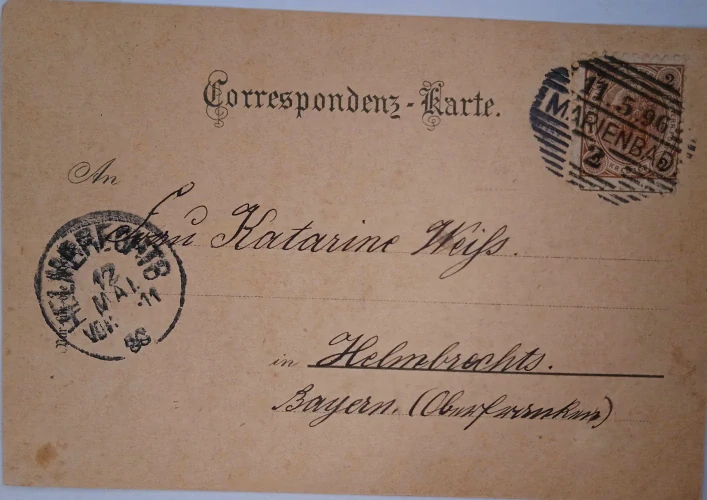 Correspondenz-Karte.
2
11.5.96
MARIENBAD
2
An
Frau Katarine Weiß.
HELMBRECHTS
12
MAI.
VOR. 11
in Helmbrechts.
Bayern. (Oberfranken)